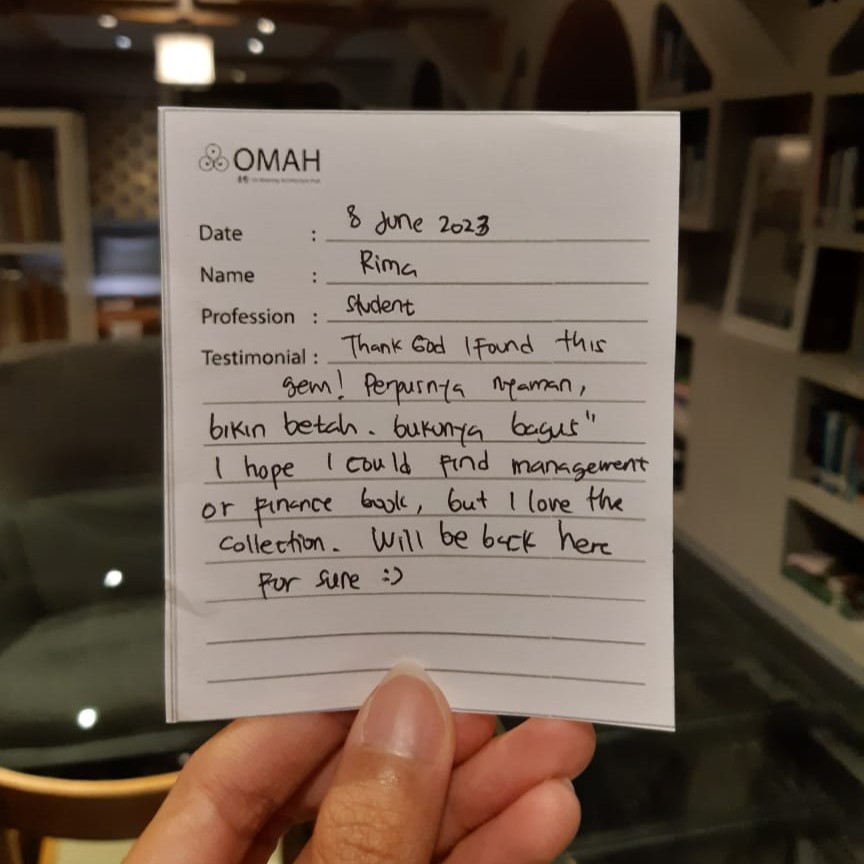 OMAH
Date : 8 June 2023
Name : Rima
Profession : Student
Testimonial : Thank God I Found this
gem! Perpusnya nyaman,
bikin betah. bukunya bagus"
I hope I could find management
or finance book, but I love the
collection. Will be back here
for sure :)